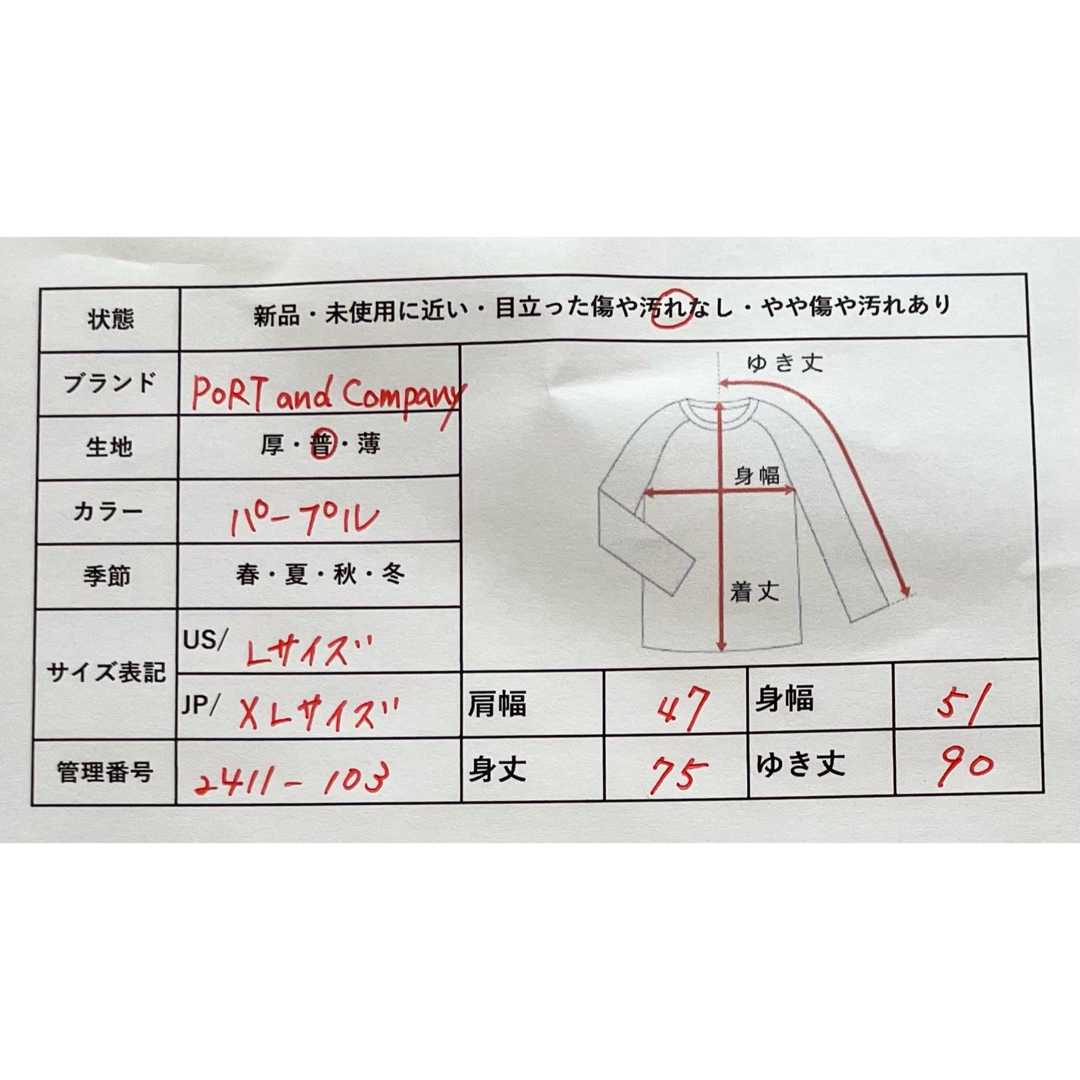 状態 新品・未使用に近い・目立った傷や汚れなし・やや傷や汚れあり
ブランド PoRT and Company
生地 厚・普・薄
カラー パープル
季節 春・夏・秋・冬
サイズ表記 US/ Lサイズ
JP/ XLサイズ
管理番号 2411-103
ゆき丈
身幅
着丈
肩幅 47 身幅 51
身丈 75 ゆき丈 90